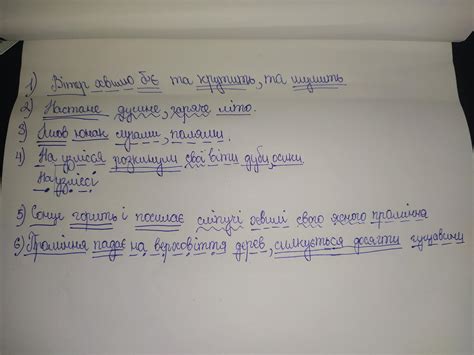 1) Вітер хвилю б'є та крутить, та шумить
2) Настане душне, гаряче літо.
3) Йшов юнак лугами, полями.
4) На узлісся розкинули свої віти дуби, осики.
На узліссі
5) Сонце горить і посилає сліпучі хвилі свого ясного проміння
6) Проміння падає на верховіття дерев, силкується досягти гущавини